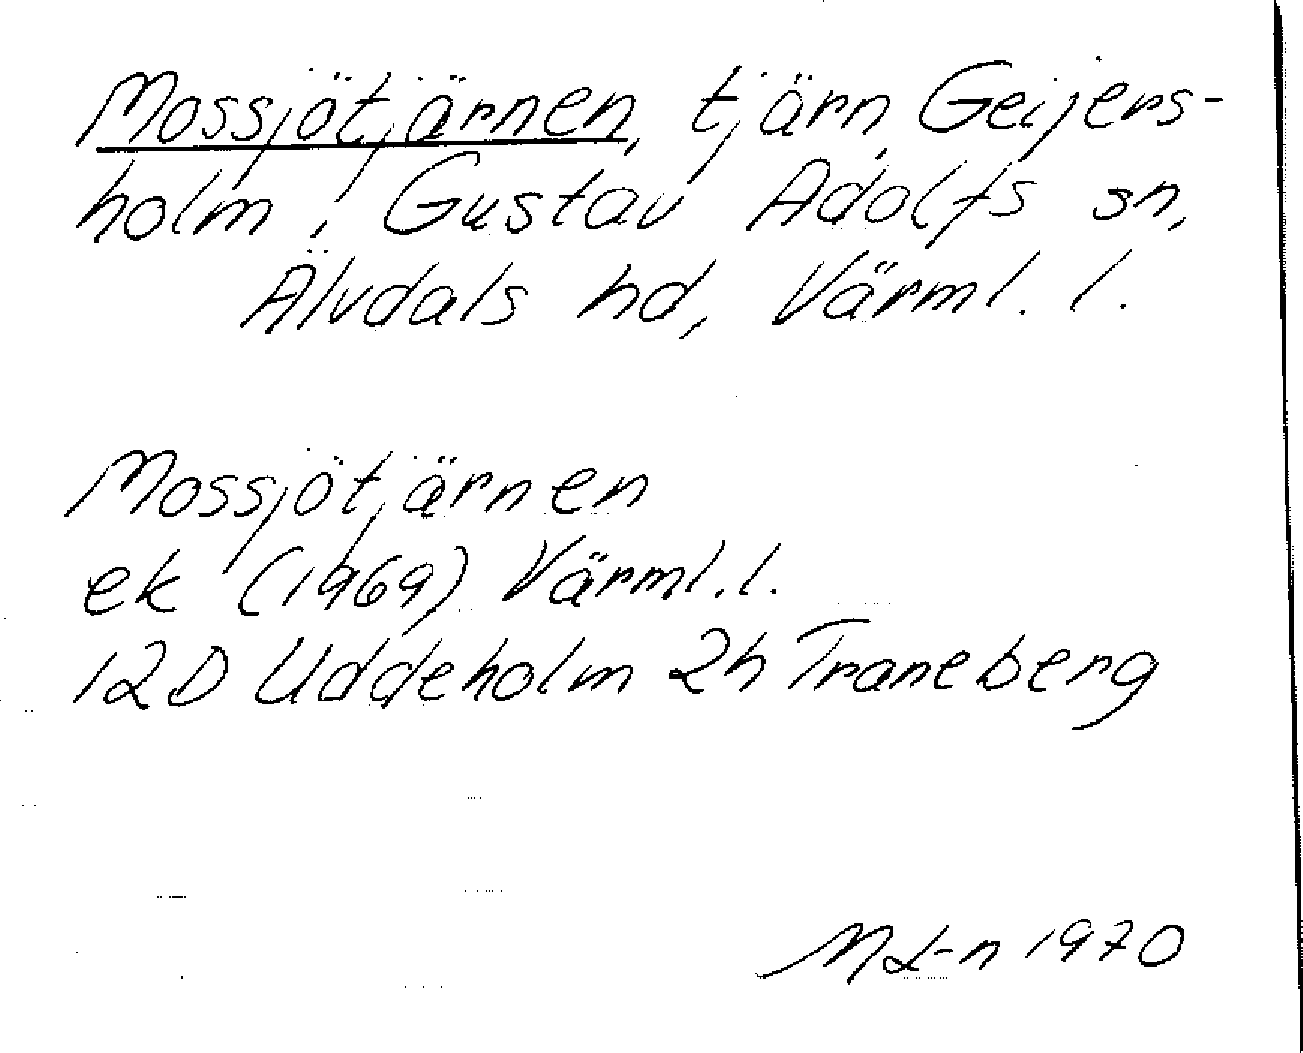 Mossjötjärnen, tjärn, Geijers-
holm, Gustav Adolfs sn,
Älvdals hd, Värml. l.
Mossjötjärnen
ek (1969) Värml. l.
12D Uddeholm 2h Traneberg
ML-n 1970